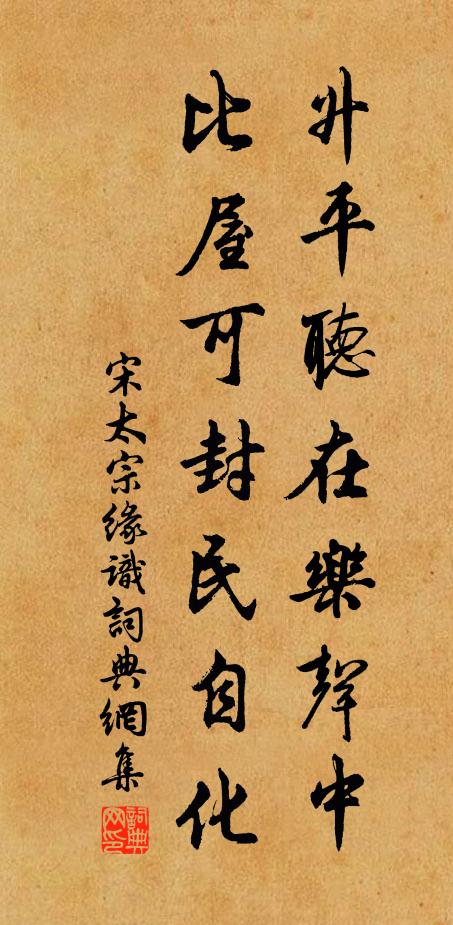 升平聽在樂聲中
比屋可封民自化
宋太宗緣識詞典網集
詞典网印